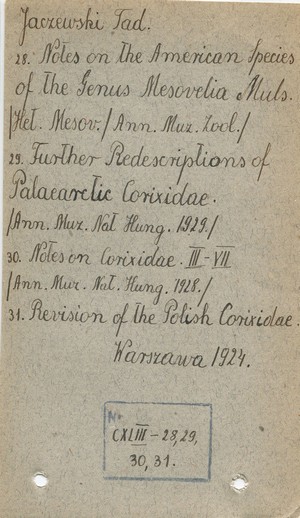 Jaczewski Tad.
28. Notes on the American Species
of the Genus Mesovelia Muls.
/Het. Mesov./ Ann. Muz. Zool./
29. Further Redescriptions of
Palaearctic Corixidae.
/Ann. Muz. Nat Hung. 1929./
30. Notes on Corixidae. III-VII
/Ann. Mur. Nat. Hung. 1928./
31. Revision of the Polish Corixidae.
Warszawa 1924.
No
CXLIII - 28, 29,
30, 31.